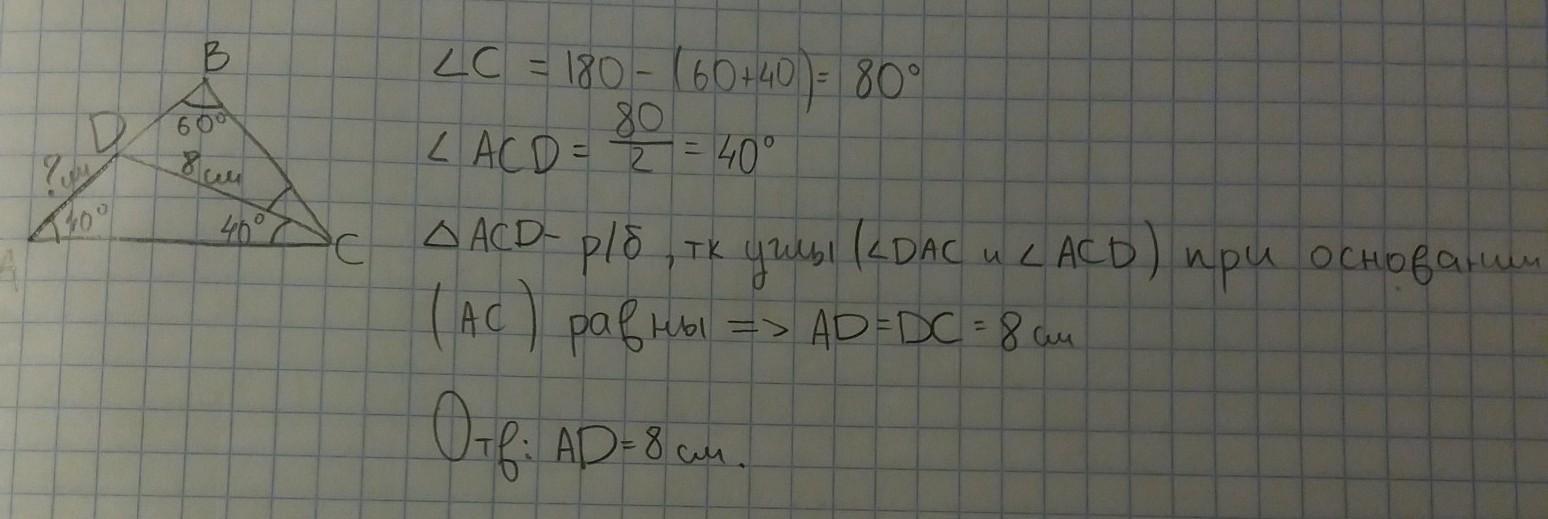 B
∠C = 180 - (60+40) = 80°
60°
D
∠ ACD = 80/2 = 40°
? см
8 см
40°
40°
A
C
△ ACD - р/б, тк углы (∠DAC и ∠ACD) при основании
(AC) равны => AD=DC=8 см
Отв: AD=8 см.